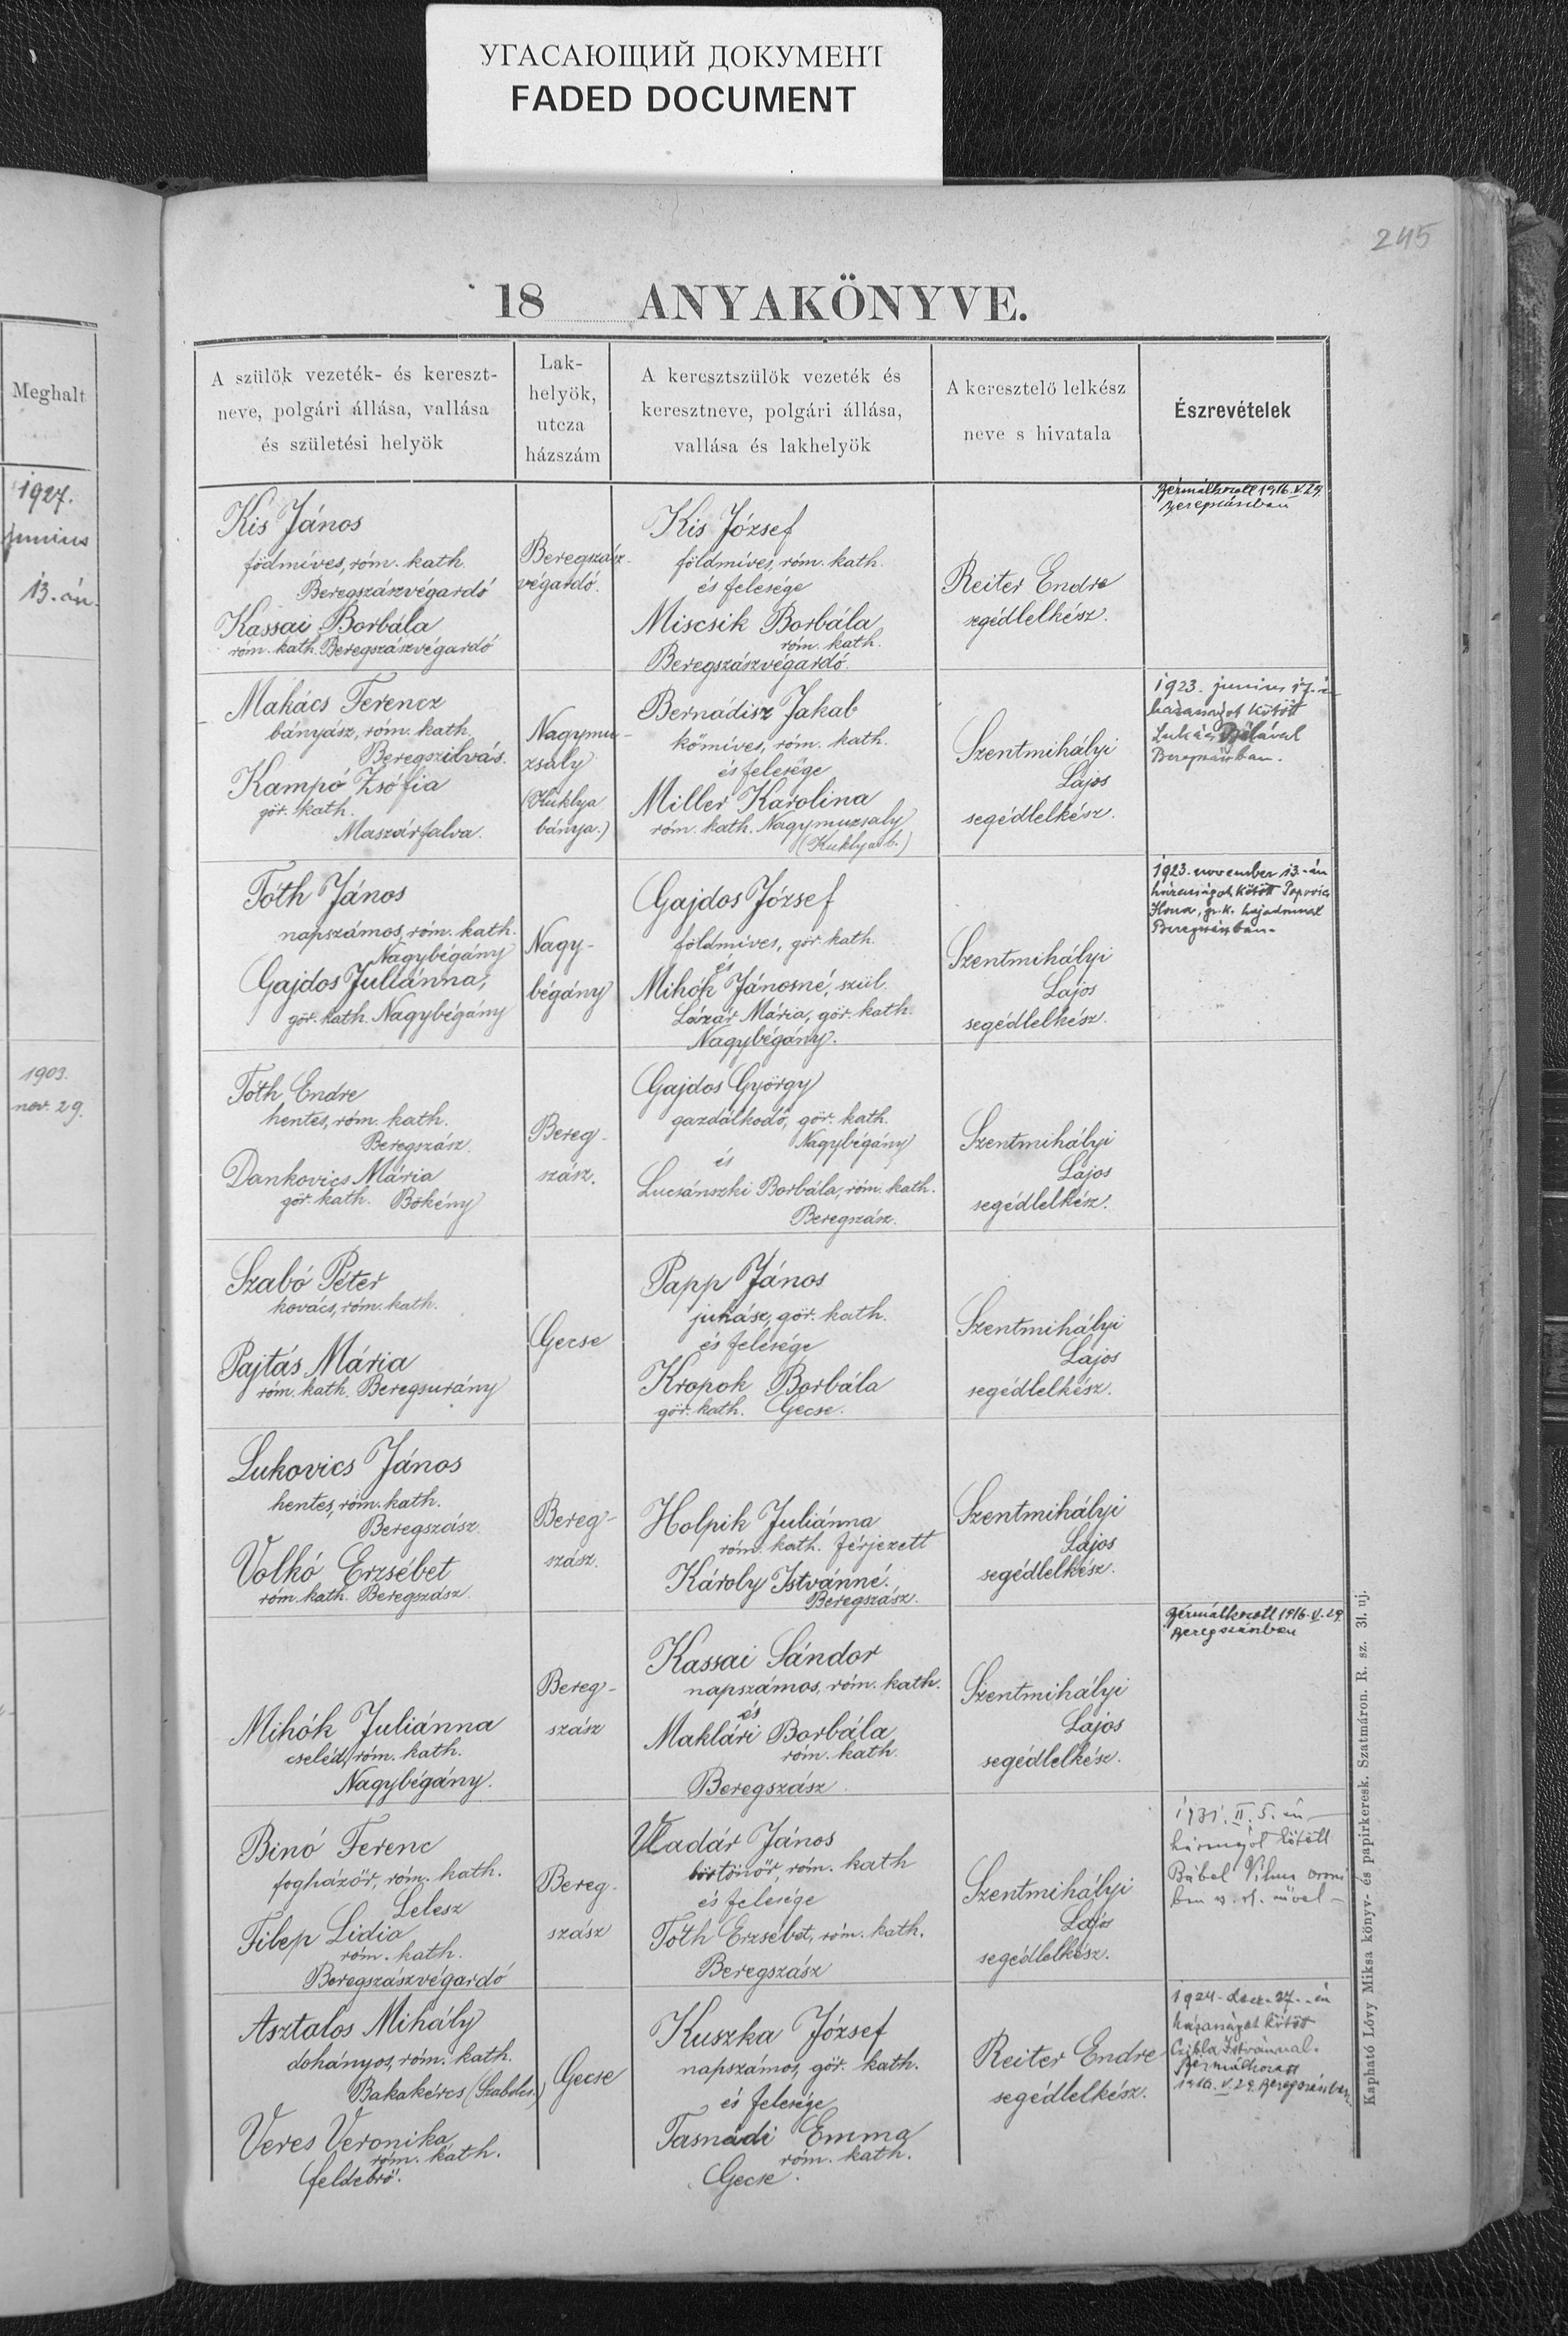 УГАСАЮЩИЙ ДОКУМЕНТ
FADED DOCUMENT
245
18 ANYAKÖNYVE.
Meghalt
1927.
junius
13.-án.
1903.
nov. 29.
A szülök vezeték- és kereszt-
neve, polgári állása, vallása
és születési helyök
Lak-
helyök,
utcza
házszám
A keresztszülök vezeték és
keresztneve, polgári állása,
vallása és lakhelyök
A keresztelő lelkész
neve s hivatala
Észrevételek
Kis János
födmíves, róm. kath.
Beregszászvégardó
Kassai Borbála
róm. kath. Beregszászvégardó
Beregszász-
végardó.
Kis József
földmíves, róm. kath.
és felesége
Miscsik Borbála
róm. kath.
Beregszászvégardó.
Reiter Endre
segédlelkész.
Bérmálkozott 1916. V. 29.
Beregszászban
Makács Ferencz
bányász, róm. kath.
Beregszilvás.
Kampó Zsófia
gör. kath.
Maszárfalva.
Nagymu-
zsaly
(Kuklya
bánya.)
Bernádisz Jakab
kőmíves, róm. kath.
és felesége
Miller Karolina
róm. kath. Nagymuzsaly
(Kuklya b.)
Szentmihályi
Lajos
segédlelkész.
1923. junius 17.-
házasságot kötött
Lukács
Beregszászban.
Tóth János
napszámos, róm. kath.
Nagybégány
Gajdos Juliánna,
gör. kath. Nagybégány
Nagy-
bégány
Gajdos József
földmíves, gör. kath.
és
Mihók Jánosné, szül.
Lázár Mária, gör. kath.
Nagybégány.
Szentmihályi
Lajos
segédlelkész.
1923. november 13.-án
házasságot kötött Popovics
Ilona, g. k. hajadonnal
Beregszászban.
Tóth Endre
hentes, róm. kath.
Beregszász.
Dankovics Mária
gör. kath. Bökény
Bereg-
szász.
Gajdos György
gazdálkodó, gör. kath.
Nagybégány
és
Lucsánszki Borbála, róm. kath.
Beregszász.
Szentmihályi
Lajos
segédlelkész.
Szabó Péter
kovács, róm. kath.
Pajtás Mária
róm. kath. Beregsurány
Gecse
Papp János
juhász, gör. kath.
és felesége
Kropok Borbála
gör. kath. Gecse.
Szentmihályi
Lajos
segédlelkész.
Lukovics János
hentes, róm. kath.
Beregszász.
Volkó Erzsébet
róm. kath. Beregszász.
Bereg-
szász.
Holpik Juliánna
róm. kath. férjezett
Károly Istvánné.
Beregszász.
Szentmihályi
Lajos
segédlelkész.
Mihók Juliánna
cseléd, róm. kath.
Nagybégány.
Bereg-
szász
Kassai Sándor
napszámos, róm. kath.
és
Maklári Borbála
róm. kath.
Beregszász.
Szentmihályi
Lajos
segédlelkész.
Bérmálkozott 1916. V. 29.
Beregszászban
Binó Ferenc
fogházőr, róm. kath.
Lelesz
Filep Lidia
róm. kath.
Beregszászvégardó
Bereg-
szász
Vladár János
börtönőr, róm. kath
és felesége
Tóth Erzsébet, róm. kath.
Beregszász
Szentmihályi
Lajos
segédlelkész.
1931. II. 5. én
kötött
Bábel Vilma
Asztalos Mihály
dohányos, róm. kath.
Bakakércs (Szabolcs.)
Veres Veronika
róm. kath.
Feldebrő.
Gecse
Kuszka József
napszámos, gör. kath.
és felesége
Tasnádi Emma
róm. kath.
Gecse.
Reiter Endre
segédlelkész.
1924. dec. 27.-én
házasságot kötött
Czikla Istvánnal.
Bérmálkozott
1916. V. 29. Beregszászban.
Kapható Lővy Miksa könyv- és papirkeresk. Szatmáron. R. sz. 31. uj.